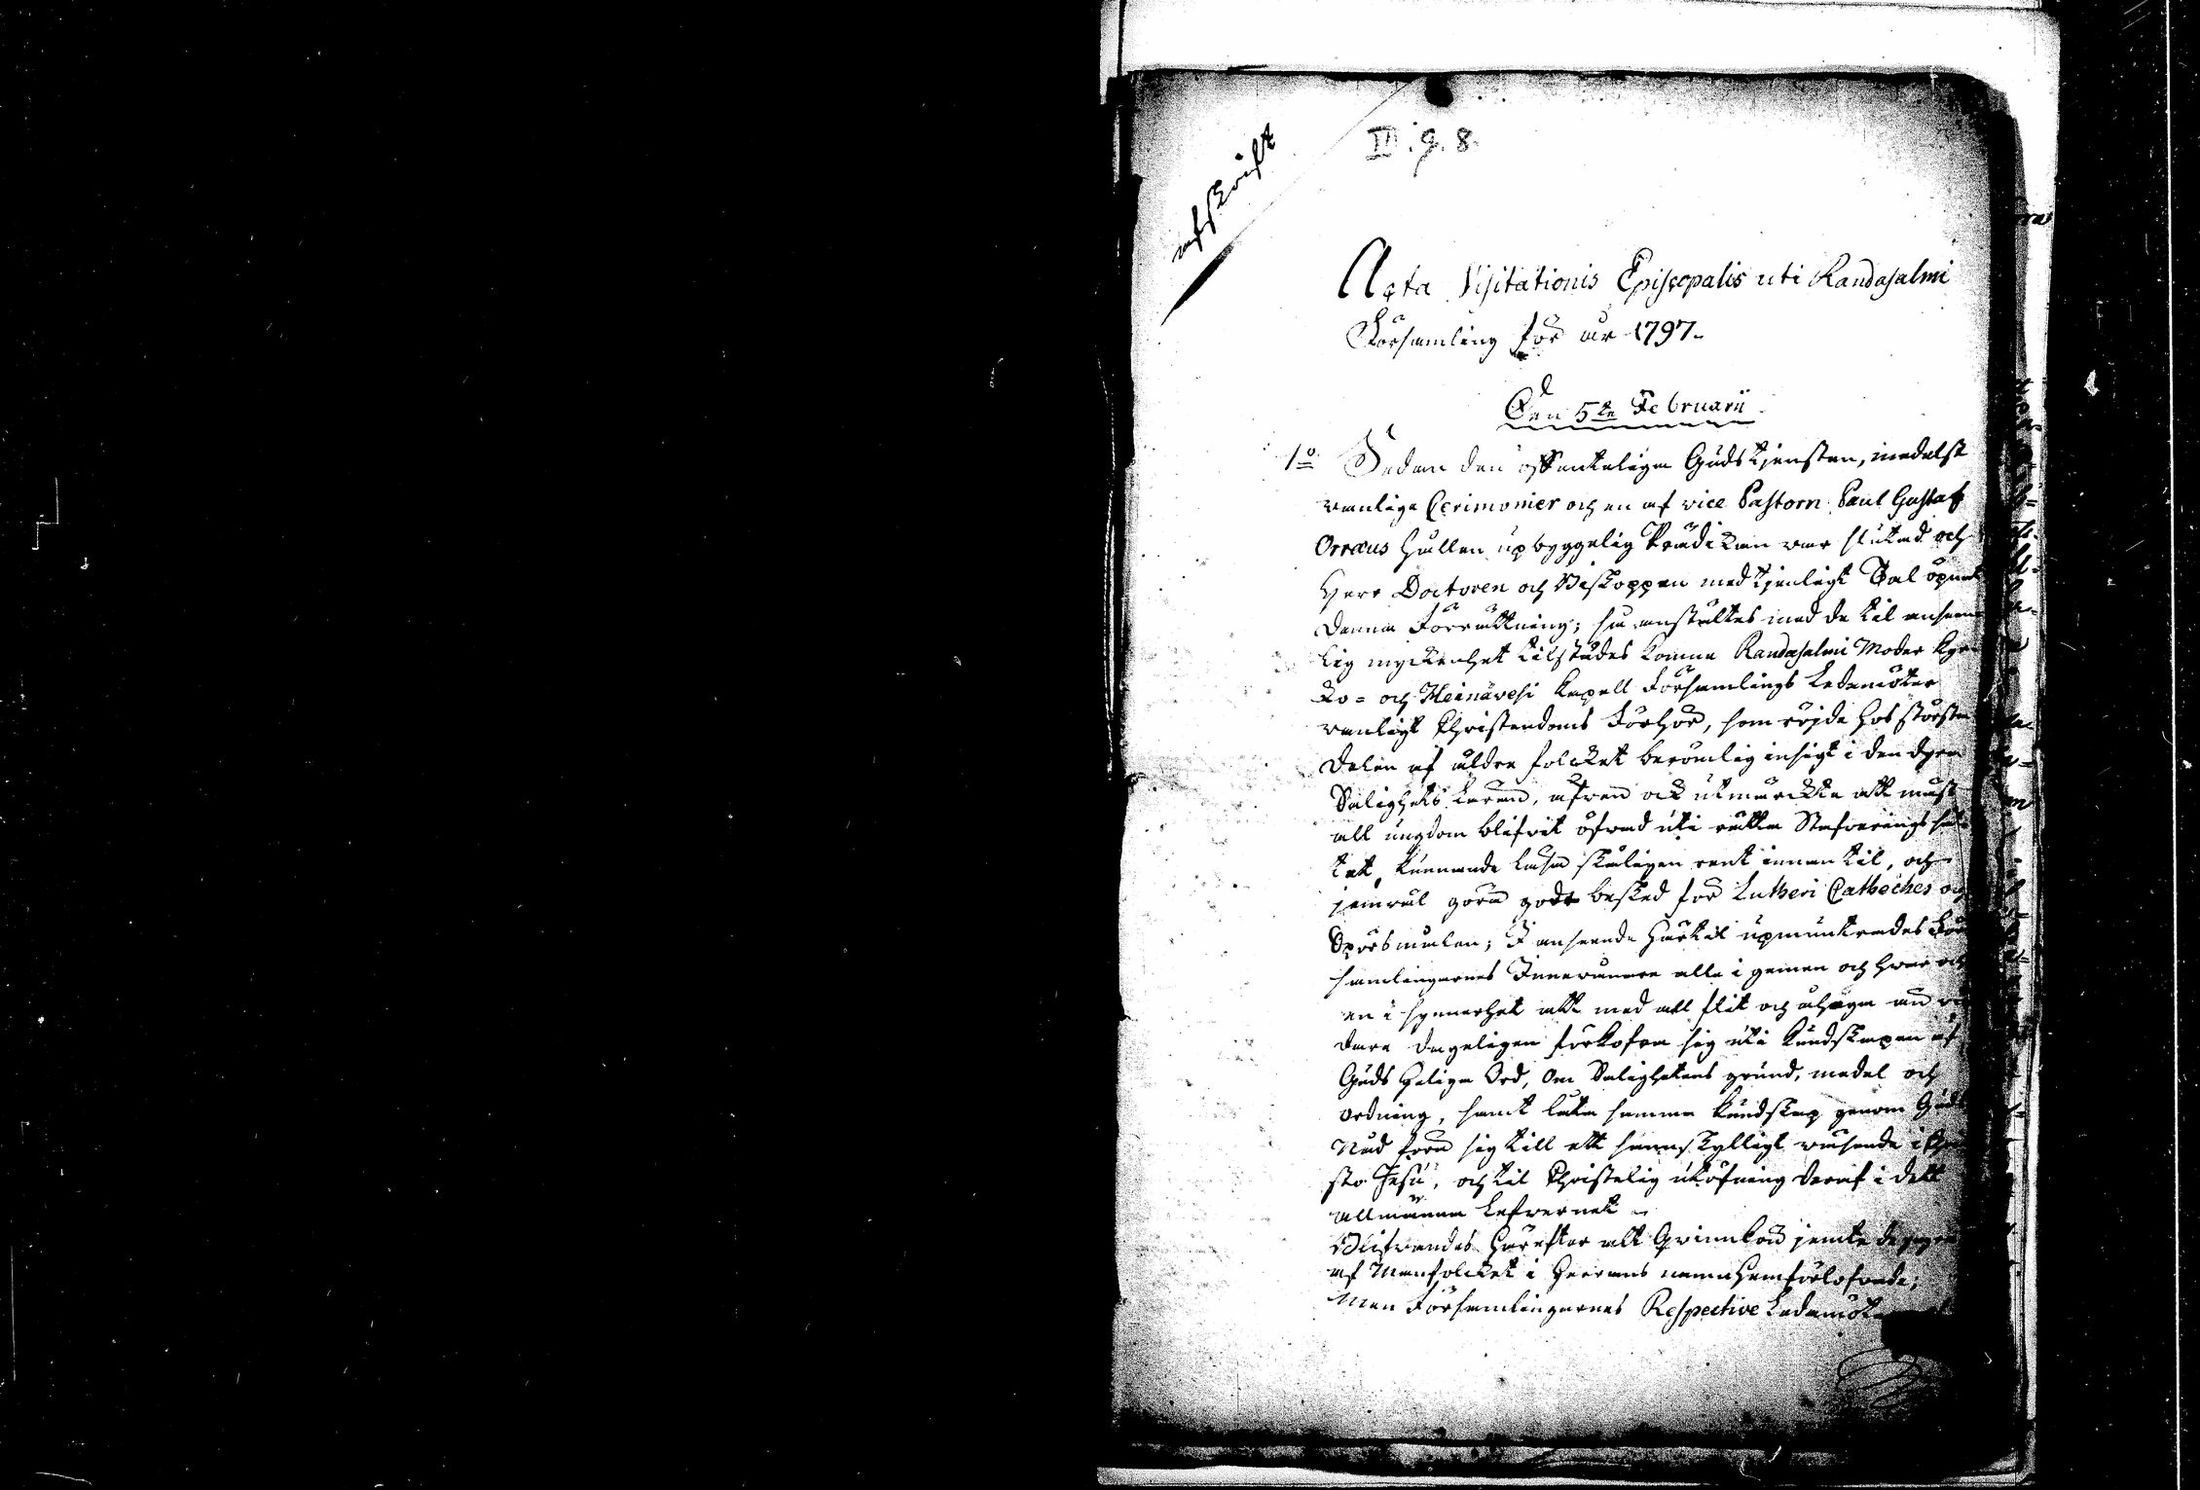 afskrift
III. g. 8.
Acta Visitationis Episcopalis uti Randasalmi
Församling för år 1797.
Den 5te Februarii
1o Sedan den offenteliga Gudstjensten, medelst
vanliga Cerimonier och en af vice Pastorn Paul Gustaf
Orræus hållen upbyggelig Prædikan var slutad och
Herr Doctoren och Biskoppen med tjenligt Tal öpnat
denna Förrättning; så anstältes med de til ansen
lig myckenhet tilstädes komna Randasalmi Moder Kyr
ko- och Heinävesi Capell Församlings Ledamöter
vanligt Christendoms Förhör, som röjde hos största
delen af äldre folcket berömlig insigt i den dyra
Salighets Läran, äfven ock utmärckte att mäst
all ungdom blifvit öfvad uti rätta Stafvelings sät
tet, kunnande läsa skäligen rent innan til, och
jemväl göra godt besked för Lutheri Catheches och
Spörsmålen; I anseende härtil upmuntrades För
samlingarnes Innevånare alla i gemen och hvar och
en i synnerhet att med all flit och åhåga än vi
dare dageligen förkofra sig uti Kundskapen af
Guds Heliga Ord, om Salighetens grund, medel och
ordning, samt låta samma kundskap genom Guds
Nåd föra sig till ett sannskylligt väsende i Chri
sto Jesu, och til Christelig utöfning deraf i dett
allmänna Lefvernet.
Blifvandes härefter alt Qvinnkön jemte de yngre
af Manfolcket i Herrans namn hemförlofvade;
Men Församlingarnes Respective Ledamöter